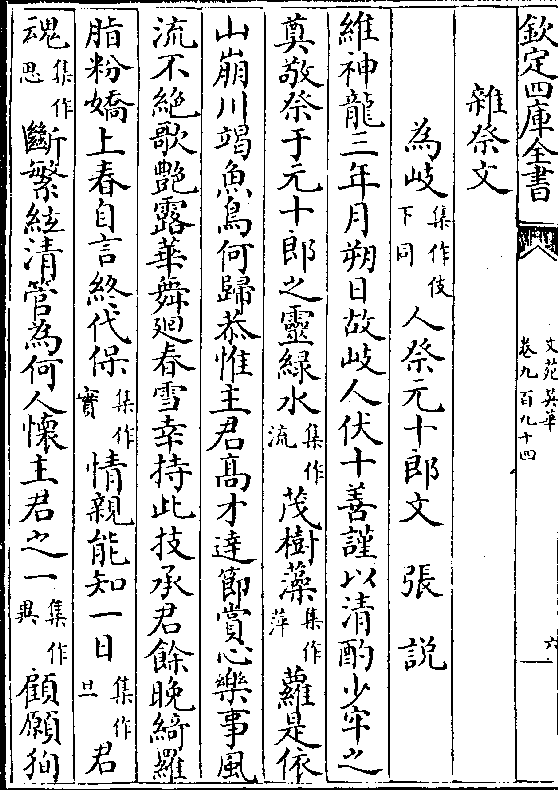 欽定四庫全書
文苑英華
卷九百九十四
六
雜祭文
為岐集作伎下同人祭元十郎文 張説
維神龍三年月朔日故岐人伏十善謹以清酌少牢之
奠敬祭于元十郎之靈緑水集作流茂樹藻集作萍蘿是依
山崩川竭魚鳥何歸恭惟主君髙才達節賞心樂事風
流不絶歌艷露華舞廻春雪幸持此技承君餘晚綺羅
脂粉嬌上春自言終代保集作寳情親能知一日集作旦君
魂集作思斷繁絃清管為何人懷主君之一集作興顧願狥